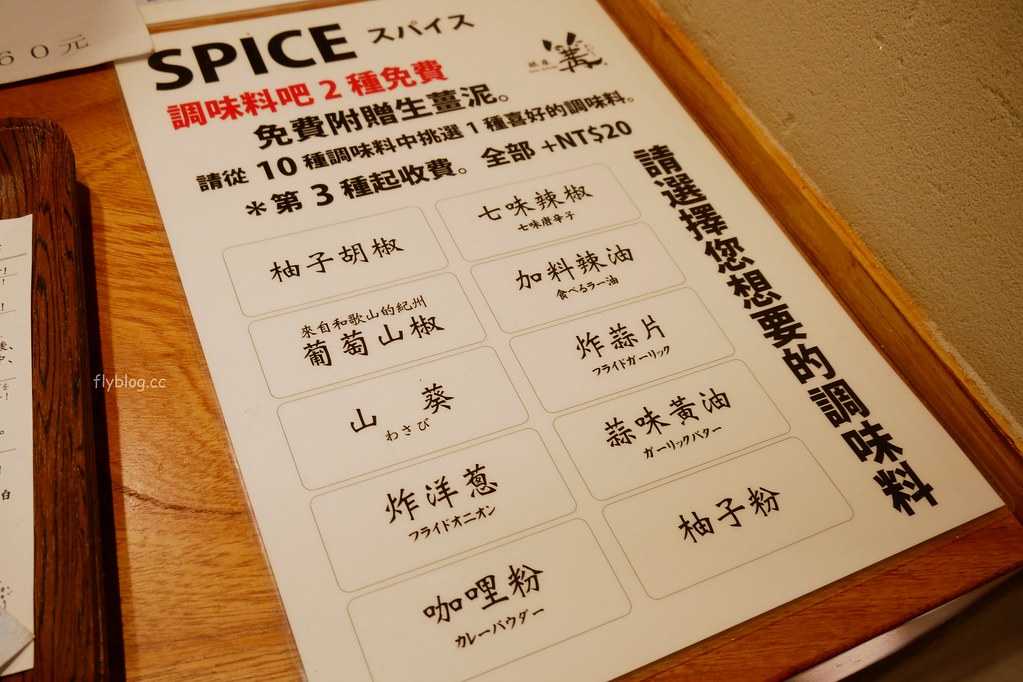 60元
SPICE スパイス
調味料吧 2 種免費
免費附贈生薑泥。
請從 10 種調味料中挑選 1 種喜好的調味料。
＊第 3 種起收費。 全部 +NT$20
請選擇您想要的調味料
柚子胡椒
七味辣椒
七味唐辛子
來自和歌山的紀州
葡萄山椒
加料辣油
食べるラー油
山 葵
わさび
炸蒜片
フライドガーリック
炸洋蔥
フライドオニオン
蒜味黃油
ガーリックバター
咖哩粉
カレーパウダー
柚子粉
flyblog.cc